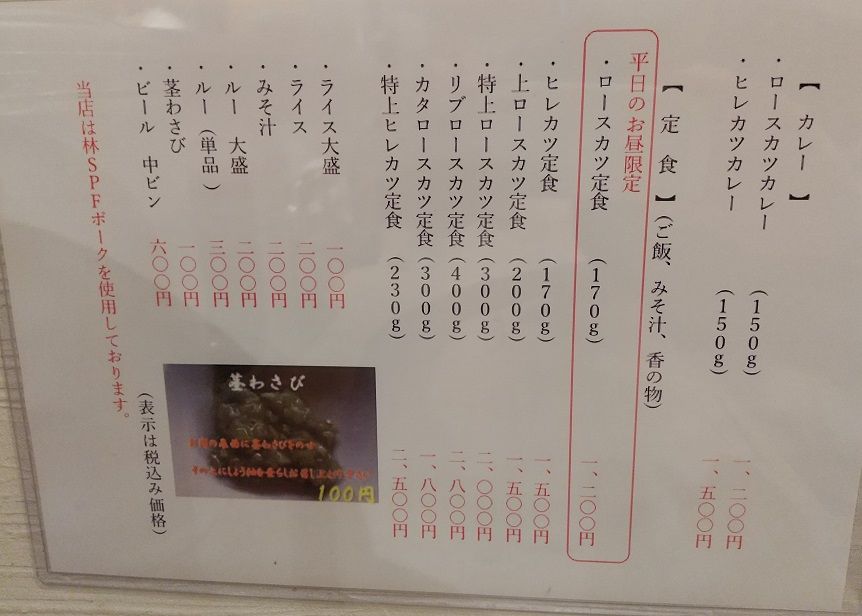 【 カレー 】
・ロースカツカレー (150g) 一、二〇〇円
・ヒレカツカレー (150g) 一、五〇〇円
【 定 食 】(ご飯、みそ汁、香の物)
平日のお昼限定
・ロースカツ定食 (170g) 一、二〇〇円
・ヒレカツ定食 (170g) 一、五〇〇円
・上ロースカツ定食 (200g) 一、五〇〇円
・特上ロースカツ定食 (300g) 二、〇〇〇円
・リブロースカツ定食 (400g) 二、八〇〇円
・カタロースカツ定食 (300g) 一、八〇〇円
・特上ヒレカツ定食 (230g) 二、五〇〇円
・ライス大盛 一〇〇円
・ライス 二〇〇円
・みそ汁 二〇〇円
・ルー 大盛 二〇〇円
・ルー (単品) 三〇〇円
・茎わさび 一〇〇円
・ビール 中ビン 六〇〇円
茎わさび
100円
(表示は税込み価格)
当店は林SPFポークを使用しております。